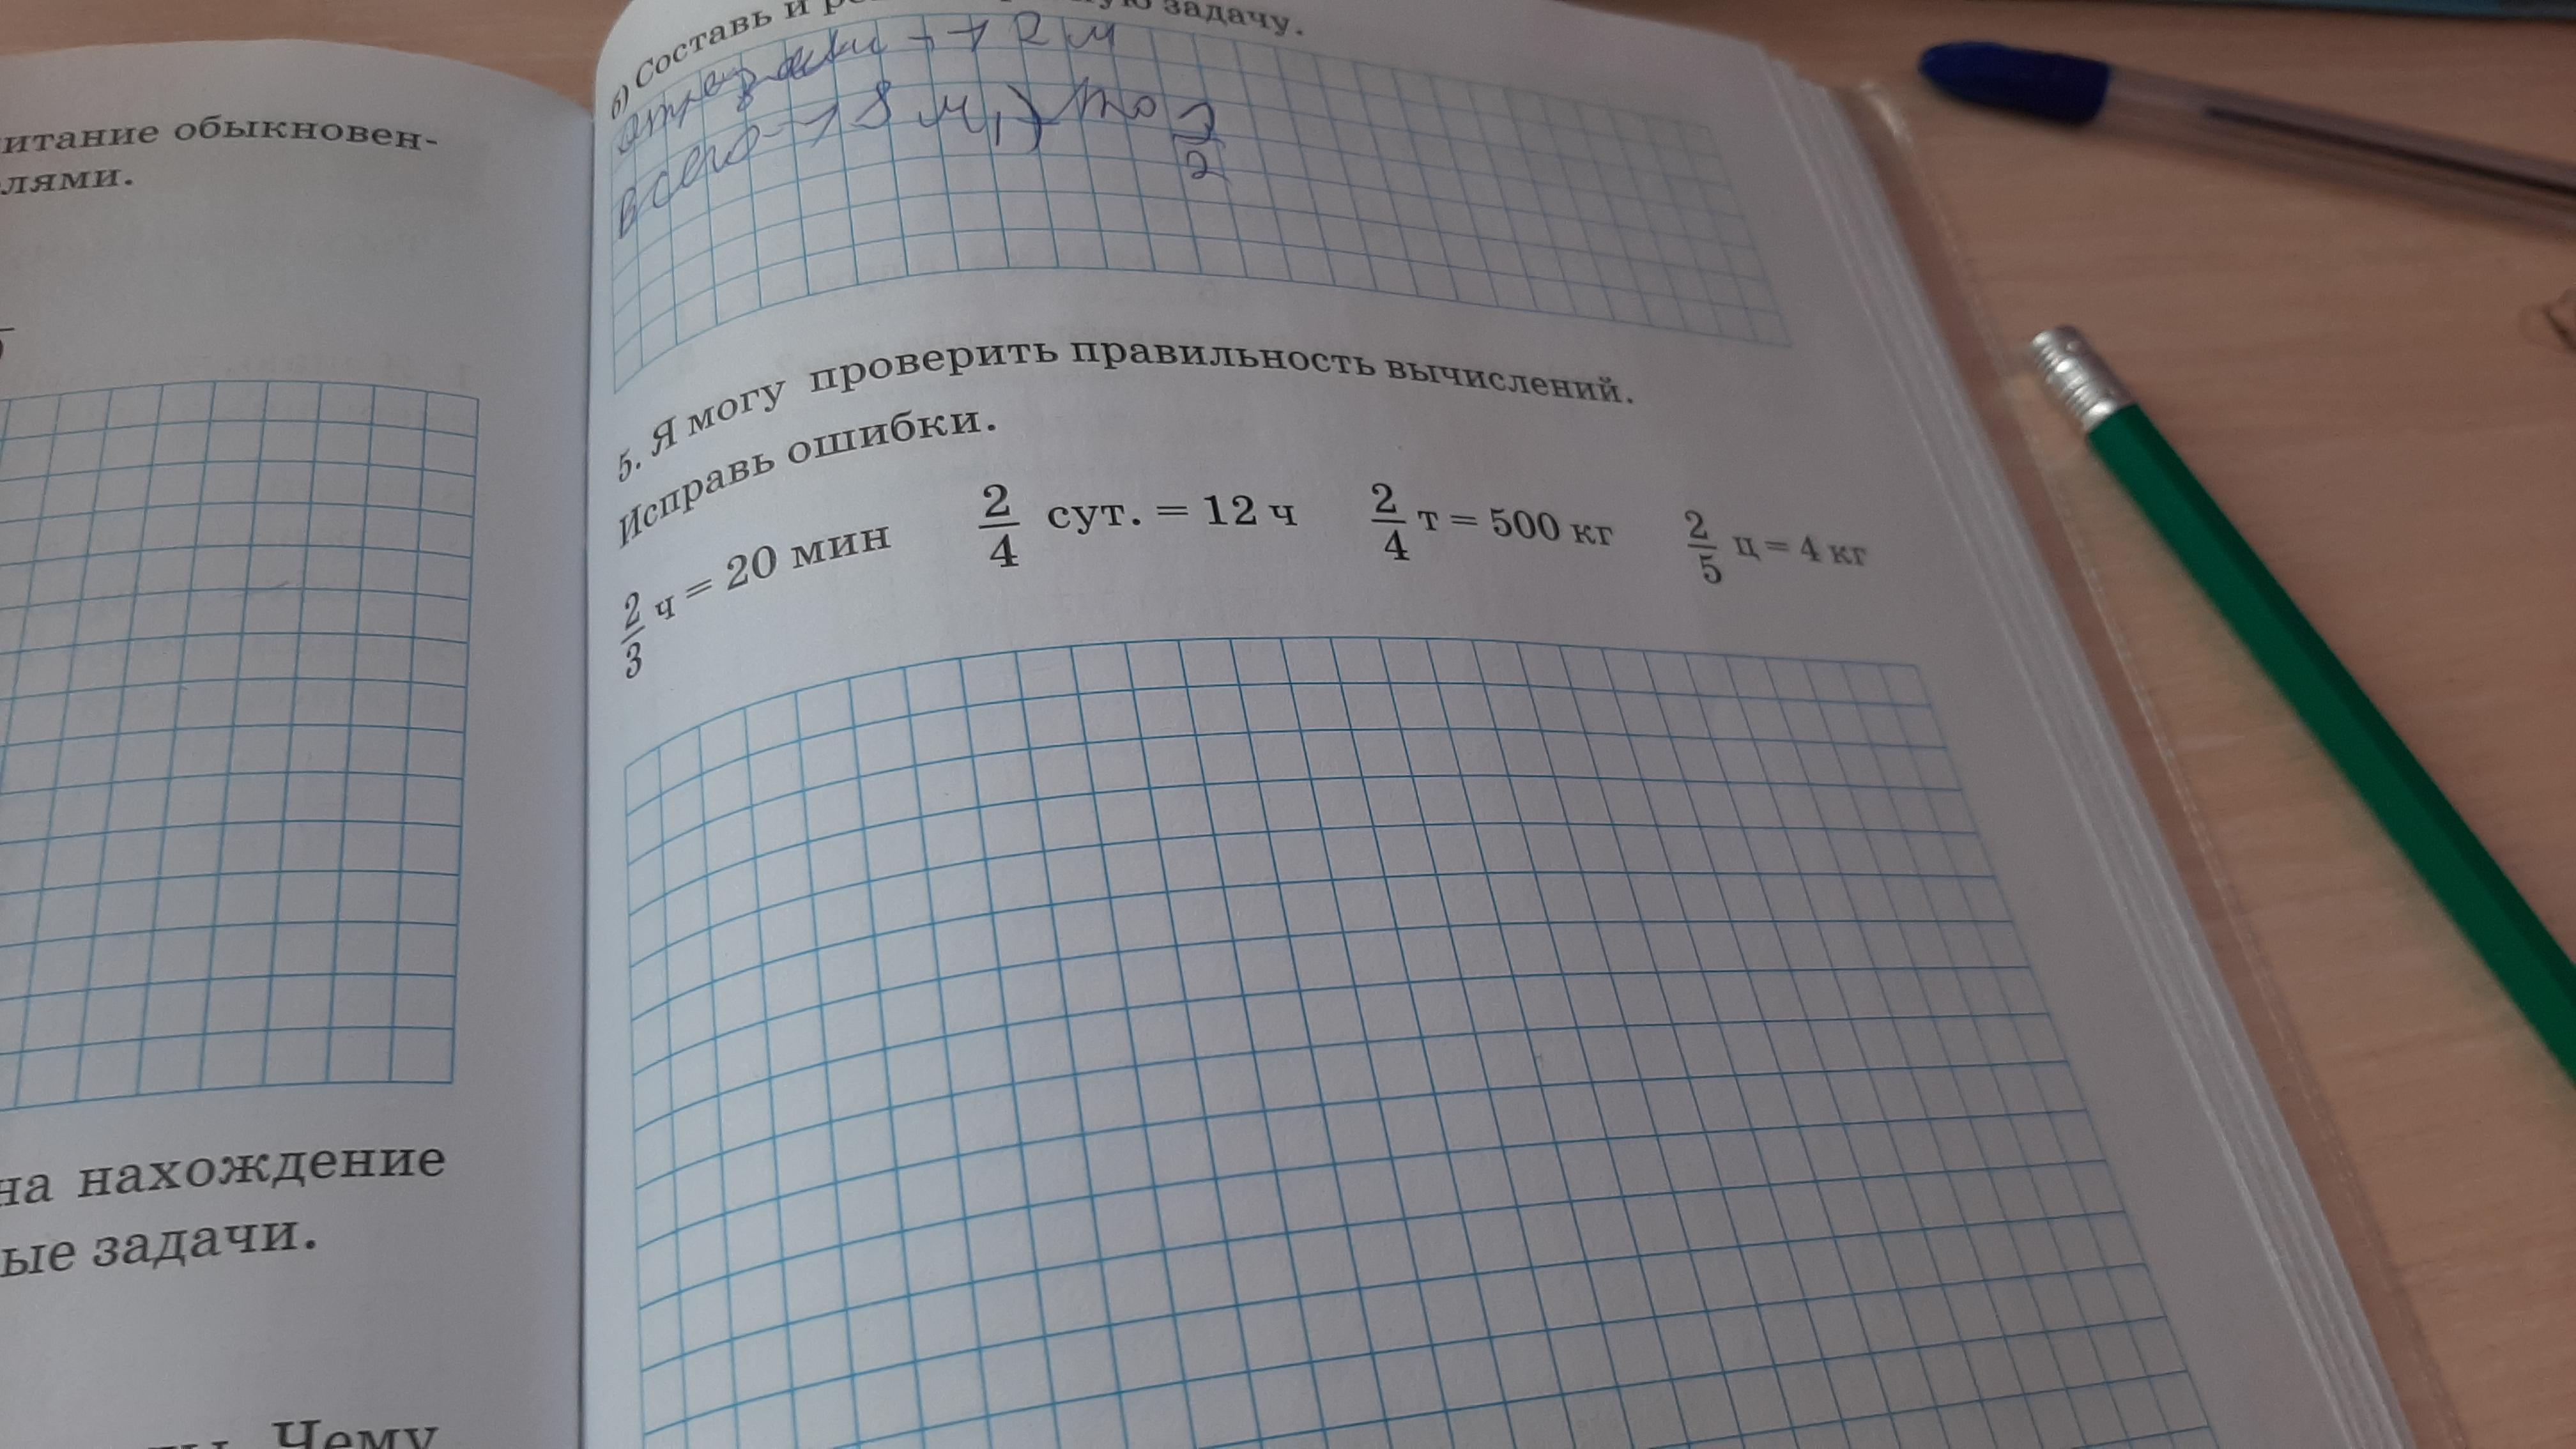 итание обыкновен-
лями.
на нахождение
ые задачи.
Чему
б) Составь и задачу.
отрезали - 12 м
всего - 18 м,
5. Я могу проверить правильность вычислений.
Исправь ошибки.
2/3 ч = 20 мин 2/4 сут. = 12 ч 2/4 т = 500 кг 2/5 ц = 4 кг